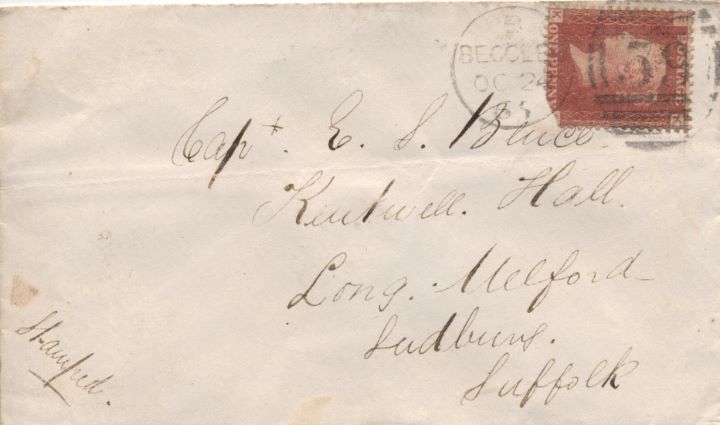 BECCLES
OC 24
ONE PENNY
POSTAGE
K
K
59
Capt. E. S. Bence
Kentwell. Hall.
Long. Melford
Sudbury.
Suffolk
Stamped.